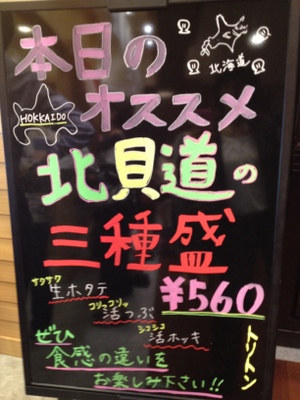 本日の
北海道
HOKKAIDO
オススメ
北貝道の
三種盛
サクサク
生ホタテ
¥560
コリッコリッ
活つぶ
シコシコ
活ホッキ
トリトン
ぜひ
食感の違いを
お楽しみ下さい!!